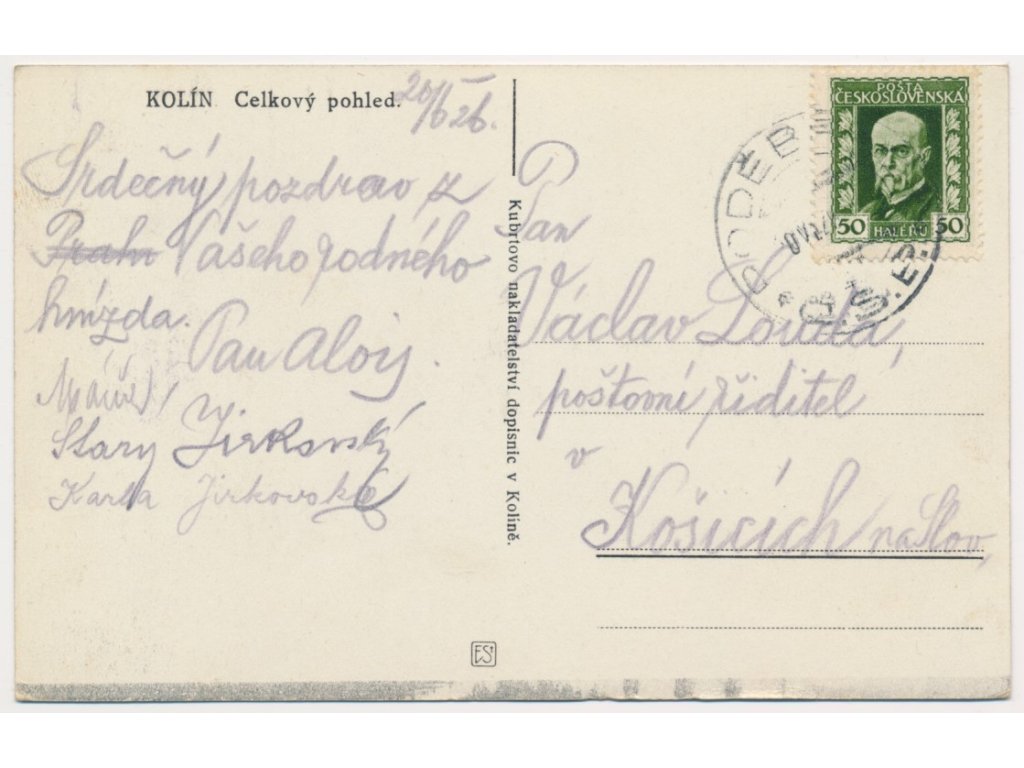 KOLÍN Celkový pohled.
20/6 26.
Srdečný pozdrav z
Vašeho rodného
hnízda.
Pan Alois
Starý Jirkovský
Karla Jirkovská
Kubrtovo nakladatelství dopisnic v Kolíně.
POŠTA
ČESKOSLOVENSKÁ
50 HALÉŘŮ 50
PODĚB
Pan
Václav Louda,
poštovní řiditel
v
Košicích na Slov.